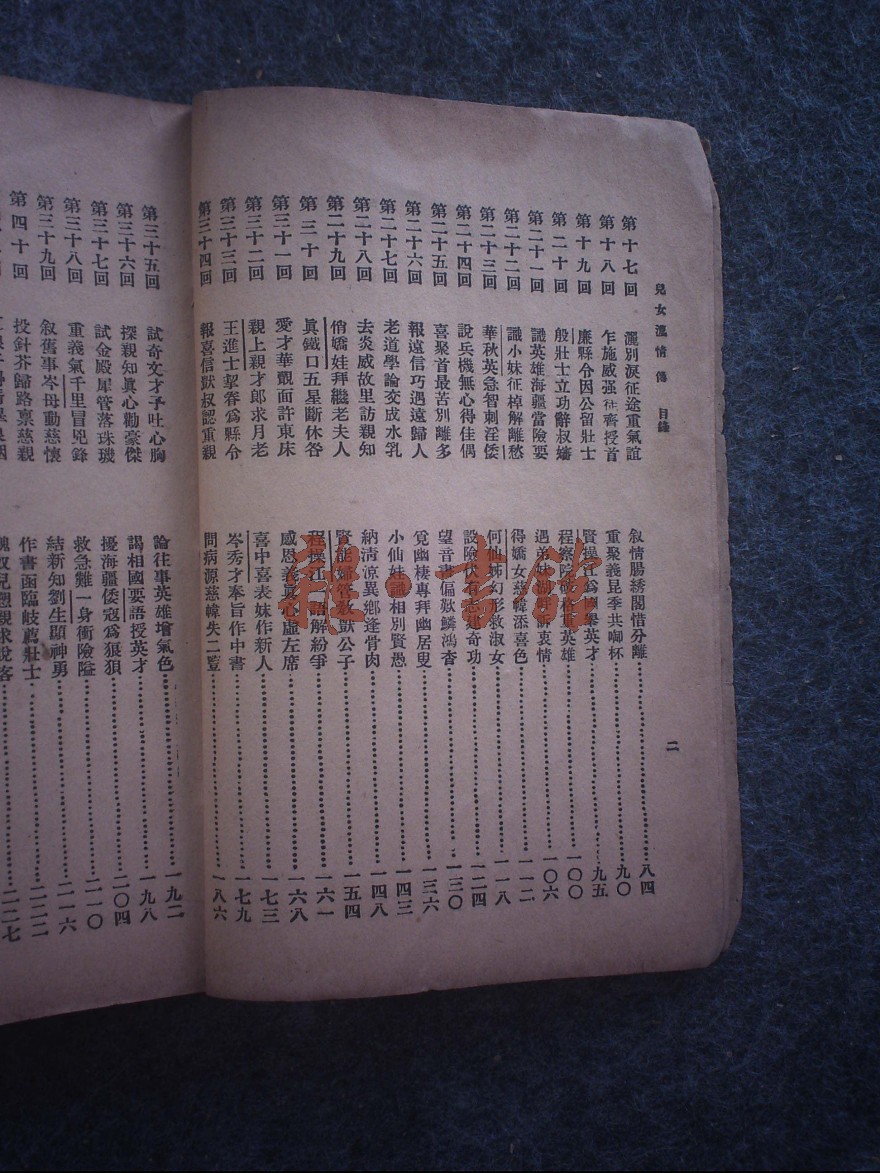 兒女濃情傳 目錄 二
第十七回 灑別淚征途重氣誼 叙情腸綉閣惜分離 八四
第十八回 乍施威强徒齊授首 重聚義昆季共啣杯 九〇
第十九回 廉縣令因公留壯士 賢操江為國舉英才 九五
第二十回 殷壯士立功辭叔嬸 程察院破格重英雄 一〇〇
第二十一回 識英雄海疆當險要 遇弟妹湖舟訴衷情 一〇六
第二十二回 識小妹征棹解離愁 得嬌女慈幃添喜色 一一二
第二十三回 華秋英急智刺淫倭 何仙姊幻形救淑女 一一八
第二十四回 說兵機無心得佳偶 設險伏有志建奇功 一二四
第二十五回 喜聚首最苦別離多 望音書偏歎鱗鴻杳 一三〇
第二十六回 報遠信巧遇遠歸人 覓幽棲專拜幽居叟 一三六
第二十七回 老道學論交成水乳 小仙娃識相別賢愚 一四三
第二十八回 去炎威故里訪親知 納清涼異鄉逢骨肉 一四八
第二十九回 俏嬌娃拜繼老夫人 賢能婦管教獃公子 一五四
第三十回 眞鐵口五星斷休咎 程操江一語解紛爭 一六一
第三十一回 愛才華覿面許東床 感恩義眞心虛左席 一六八
第三十二回 親上親才郎求月老 喜中喜表妹作新人 一七三
第三十三回 王進士挈眷爲縣令 岑秀才奉旨作中書 一七九
第三十四回 報喜信獃叔認重親 問病源慈幃失二豎 一八六
第三十五回 試奇文才予吐心胸 論往事英雄增氣色 一九二
第三十六回 探親知眞心勸豪傑 謁相國要語授英才 一九八
第三十七回 試金殿犀管落珠璣 擾海疆倭寇爲狼狽 二〇四
第三十八回 重義氣千里冒兇鋒 救急難一身衝險隘 二一〇
第三十九回 叙舊事岑母動慈懷 結新知劉生顯神勇 二一六
第四十回 投針芥歸路禀慈親 作書函臨歧薦壯士 二二二
二二七
龍 書館